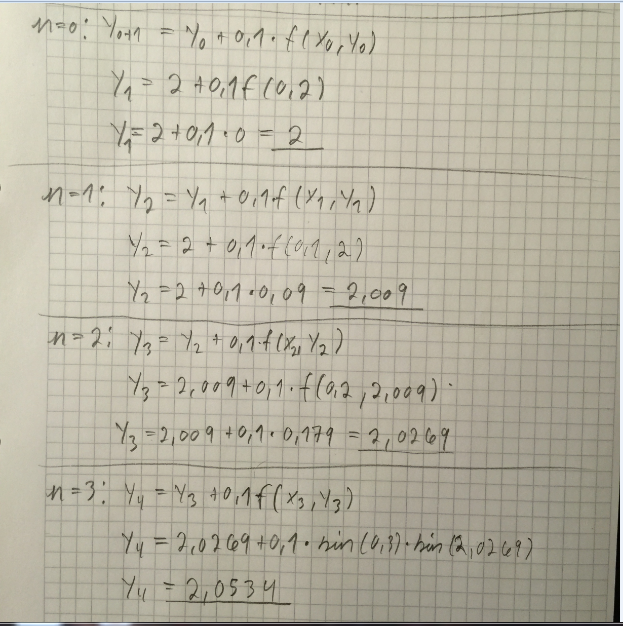 n=0: y₀₊₁ = y₀ + 0,1 · f(x₀, y₀)
y₁ = 2 + 0,1f(0,2)
y₁ = 2 + 0,1 · 0 = 2
n=1: y₂ = y₁ + 0,1f(x₁, y₁)
y₂ = 2 + 0,1 · f(0,1, 2)
y₂ = 2 + 0,1 · 0,09 = 2,009
n=2: y₃ = y₂ + 0,1 · f(x₂, y₂)
y₃ = 2,009 + 0,1 · f(0,2, 2,009)
y₃ = 2,009 + 0,1 · 0,179 = 2,0269
n=3: y₄ = y₃ + 0,1f(x₃, y₃)
y₄ = 2,0269 + 0,1 · sin(0,3) · sin(2,0269)
y₄ = 2,0534